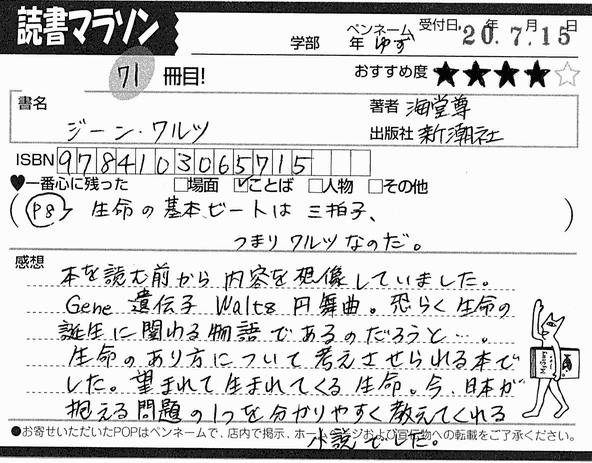 読書マラソン
学部 年 ペンネーム ゆず 受付日 20.年7.月15日
71 冊目!
おすすめ度 ★★★★☆
書名 著者 海堂尊
ジーン・ワルツ 出版社 新潮社
ISBN 9784103065715
♥一番心に残った □場面 ☑ことば □人物 □その他
(P8 生命の基本ビートは三拍子、
つまりワルツなのだ。)
感想
本を読む前から内容を想像していました。
Gene 遺伝子 Waltz 円舞曲。恐らく生命の
誕生に関わる物語であるのだろうと…。
生命のあり方について考えさせられる本で
した。望まれて生まれてくる生命。今、日本が
抱える問題の1つを分かりやすく教えてくれる
小説でした。
●お寄せいただいたPOPはペンネームで、店内で掲示、ホームページおよび宣伝物への転載をご了承ください。